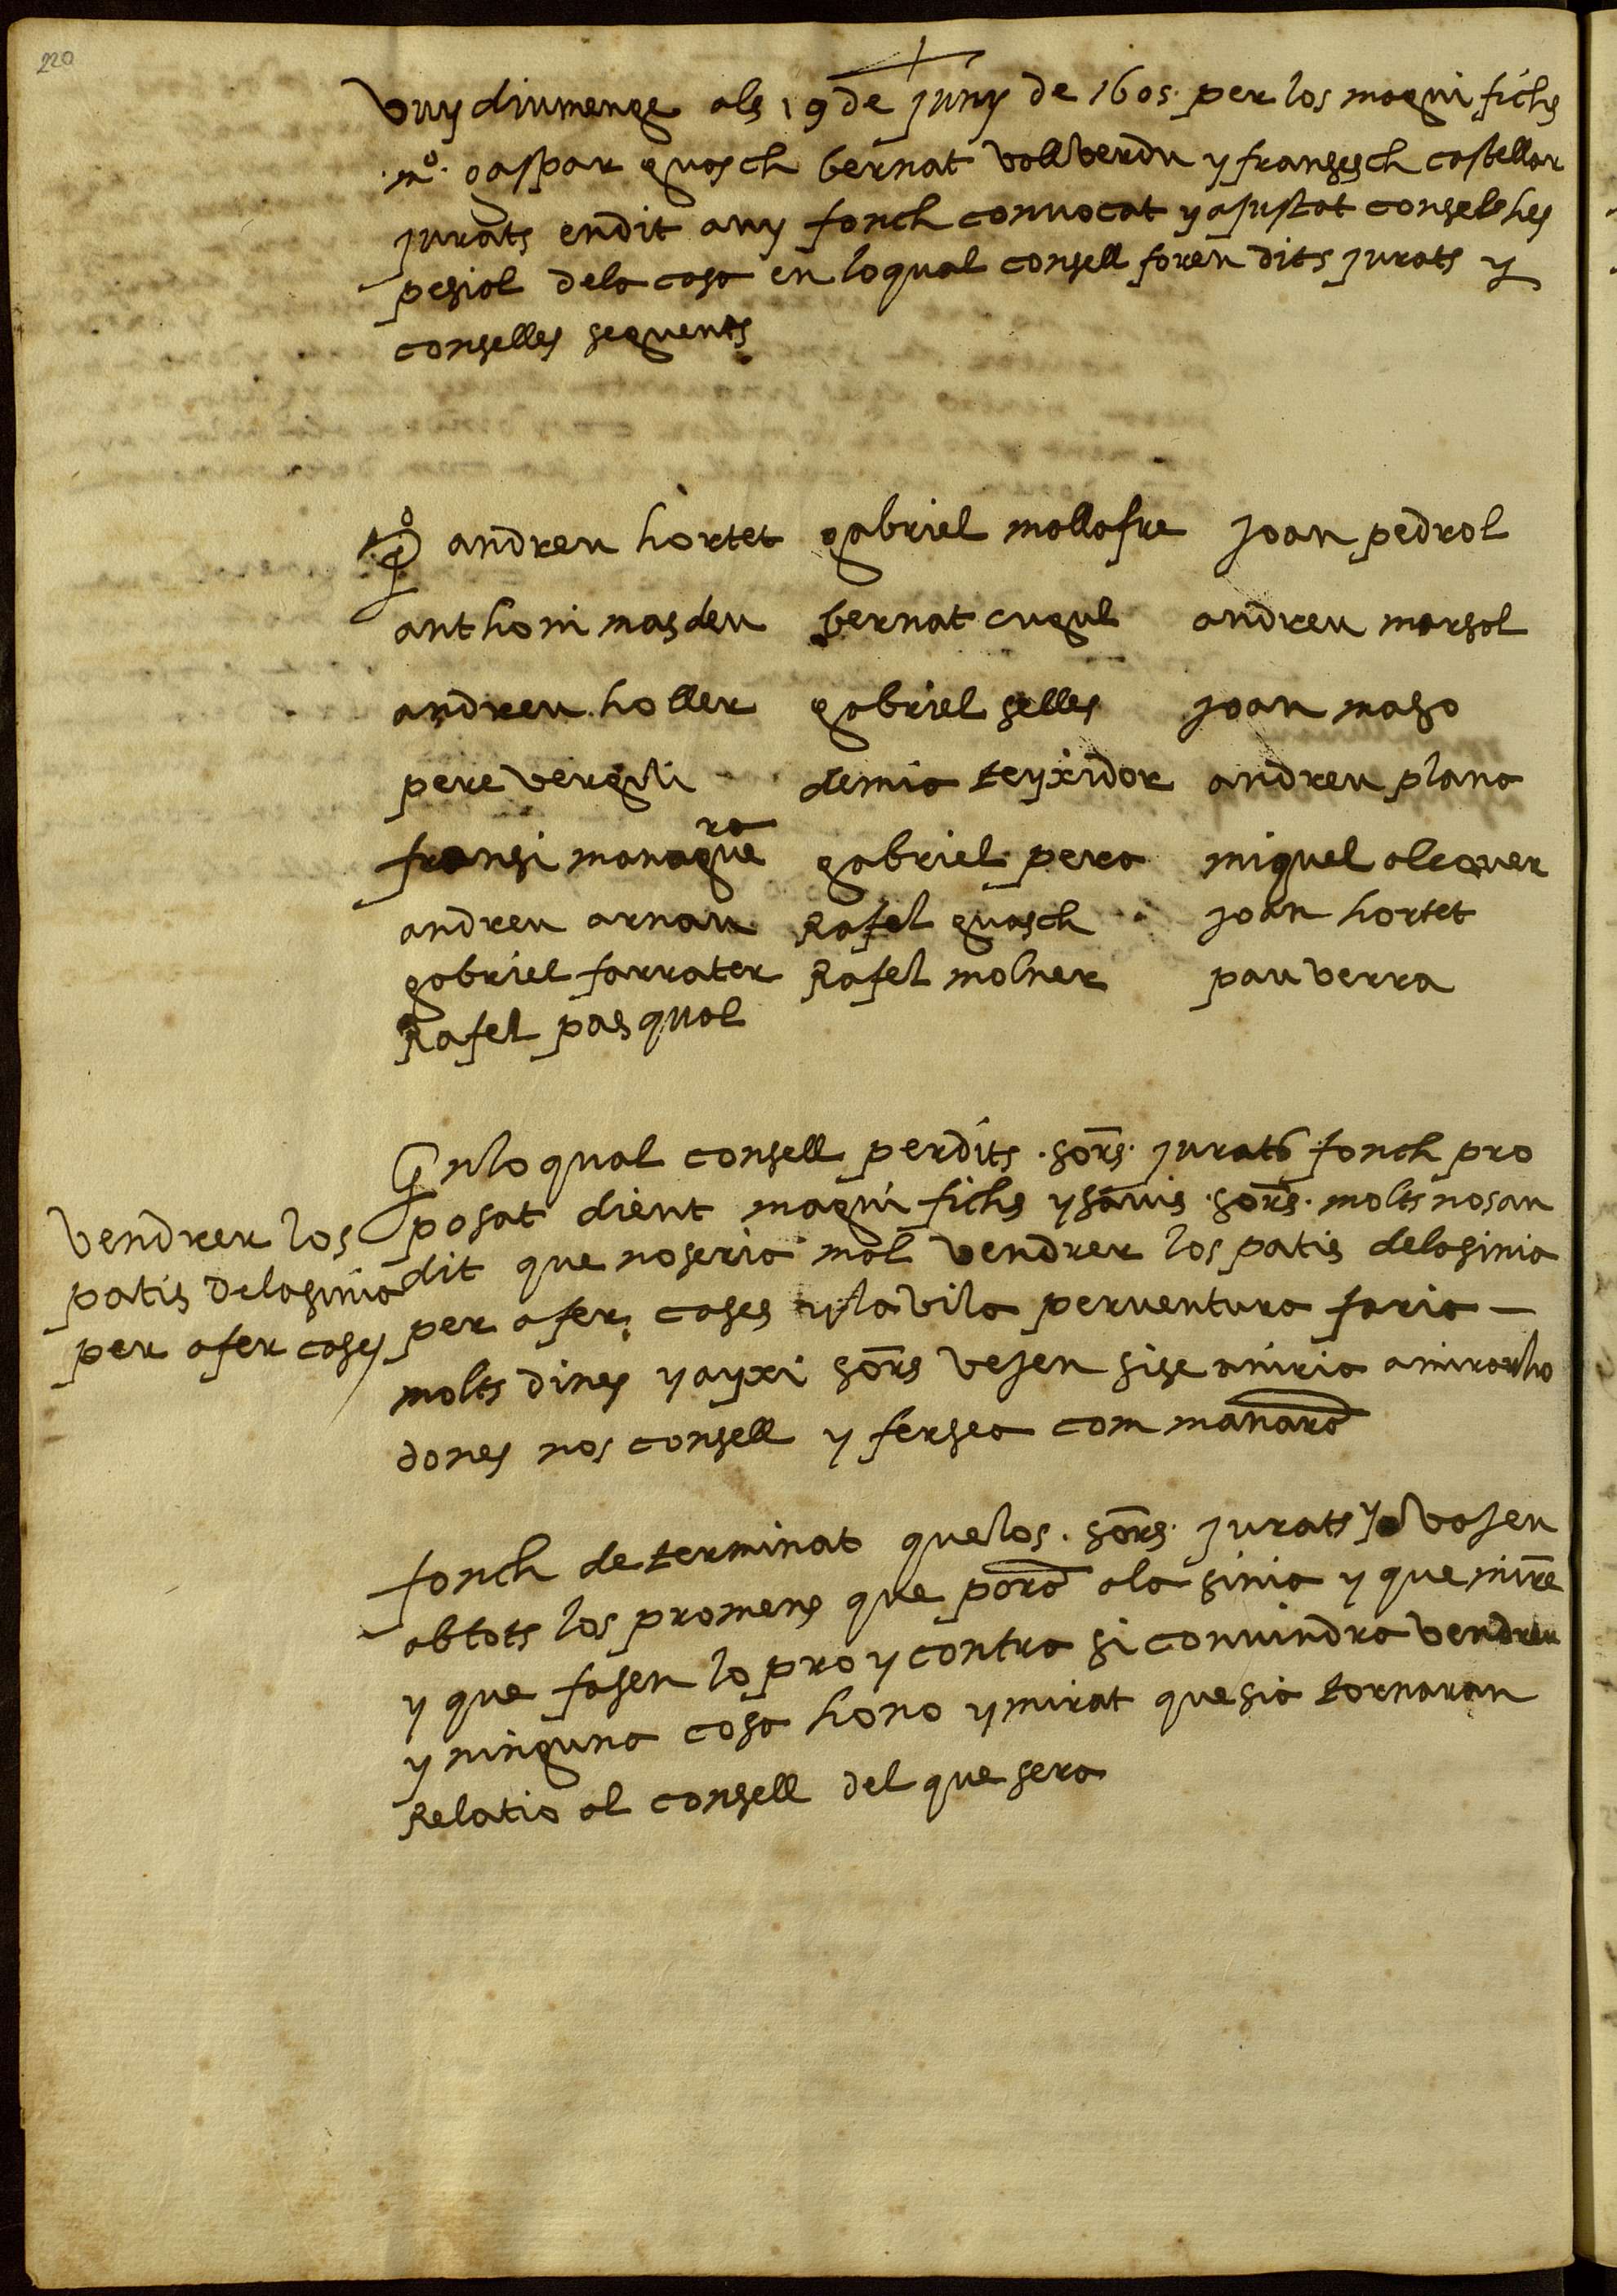 220
vuy diumenge als 19 de juny de 1605 per los magnifichs
mº. gaspar guasch bernat vallverdu y fransesch castellar
jurats en dit any fonch convocat y ajustat consel hes
pesial de la casa en lo qual consell foren dits jurats y
conselles seguents
pº andreu hortet gabriel mallafre joan pedrol
anthoni masdeu bernat cugul andreu marsal
andreu holler gabriel selles joan maso
pere vergili demia teyxidor andreu plana
fransi managuera gabriel pera miquel alcover
andreu arnau Rafel guasch joan hortet
gabriel farrater Rafel molner pau verra
Rafel pasqual
En lo qual consell per dits sors. jurats fonch pro
posat dient magnifichs y savis sors. molts nos an
dit que no seria mal vendrer los patis de la sinia
per a fer cases y la vila perventura faria
molts dines y ayxi sors vejen si se aniria a mirar ho
dones nos consell y fersea com manara
vendrer los
patis de la sinia
per a fer cases
fonch determinat que los sors. jurats y vajen
ab tots los promens que pora a la sinia y que mire
y que fasen lo pro y contra si convindra vendreu
y ninguna cosa ho no y mirat que sia tornaran
Relatio al consell del que sera